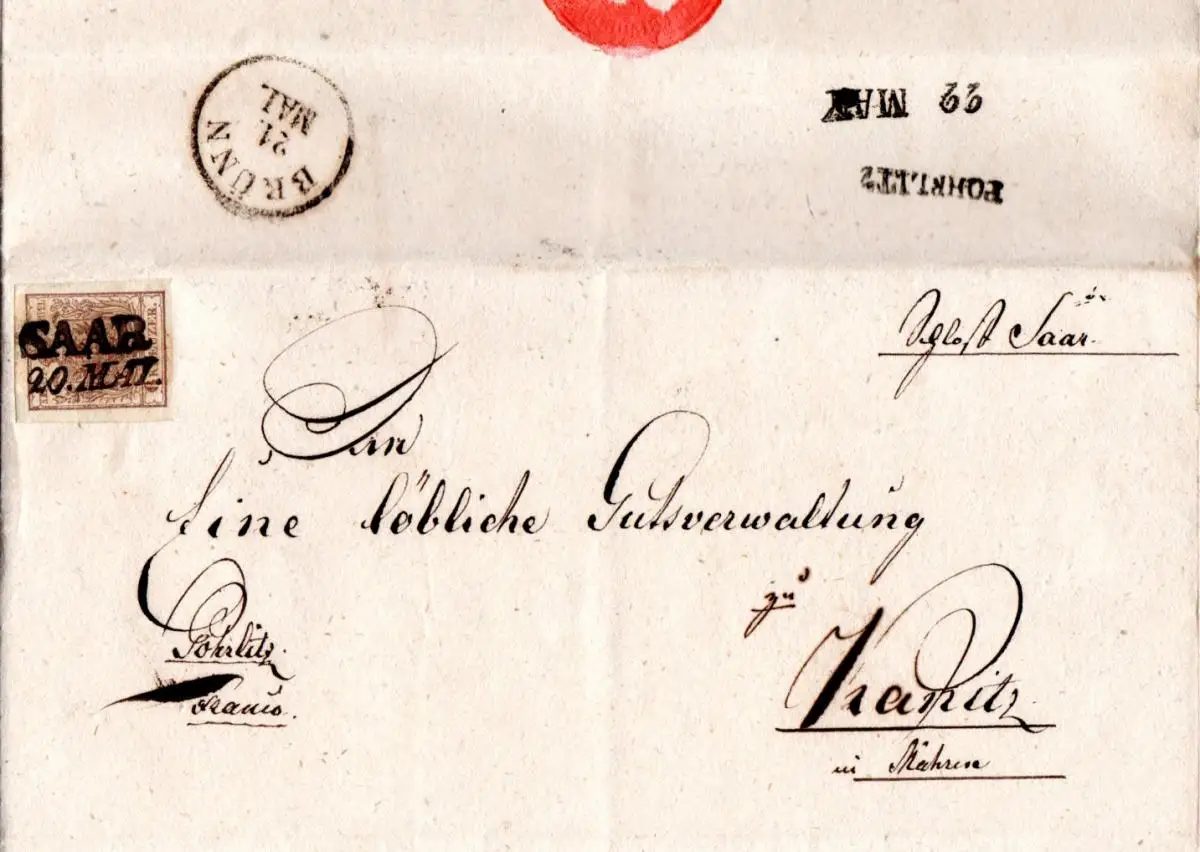 BRÜNN
21
MAI.
22 MAI
POHRLITZ
SAAR
20. MAI.
Schloß Saar.
An
Eine löbliche Gutsverwaltung
zu
Kanitz
in Mähren
Pohrlitz.
franco.